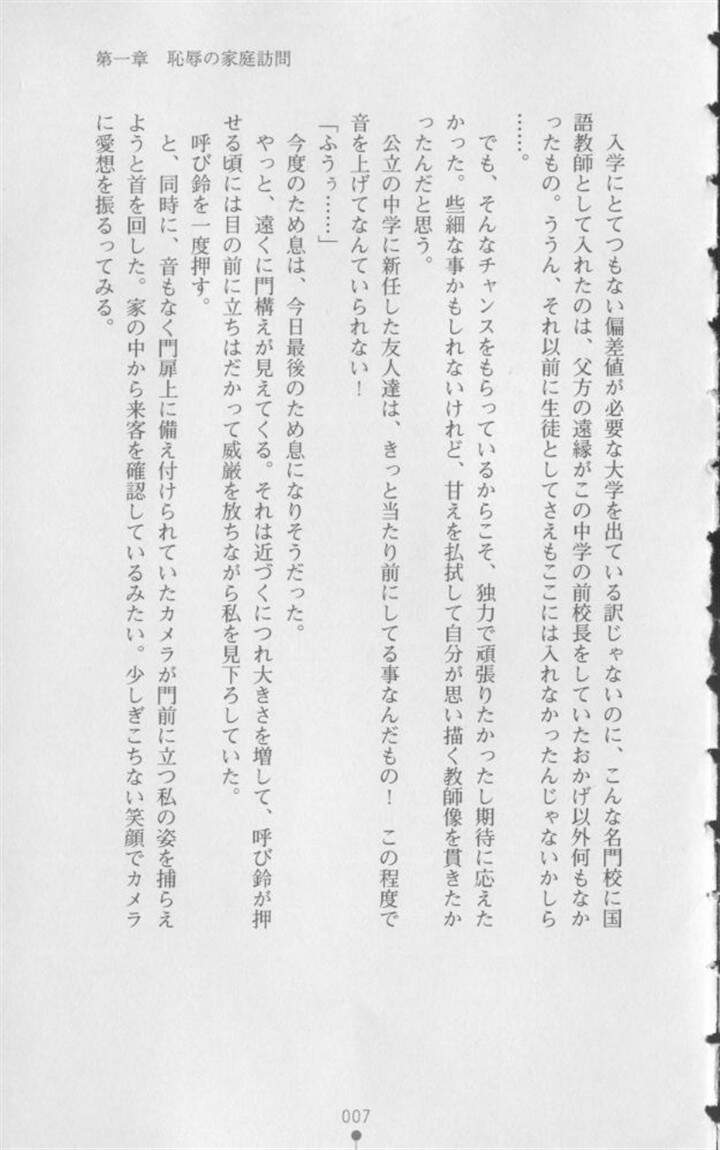 第一章　恥辱の家庭訪問
　入学にとてつもない偏差値が必要な大学を出ている訳じゃないのに、こんな名門校に国
語教師として入れたのは、父方の遠縁がこの中学の前校長をしていたおかげ以外何もなか
ったもの。ううん、それ以前に生徒としてさえもここには入れなかったんじゃないかしら
……。
　でも、そんなチャンスをもらっているからこそ、独力で頑張りたかったし期待に応えた
かった。些細な事かもしれないけれど、甘えを払拭して自分が思い描く教師像を貫きたか
ったんだと思う。
　公立の中学に新任した友人達は、きっと当たり前にしてる事なんだもの！　この程度で
音を上げてなんていられない！
「ふうぅ……」
　今度のため息は、今日最後のため息になりそうだった。
　やっと、遠くに門構えが見えてくる。それは近づくにつれ大きさを増して、呼び鈴が押
せる頃には目の前に立ちはだかって威厳を放ちながら私を見下ろしていた。
　呼び鈴を一度押す。
　と、同時に、音もなく門扉上に備え付けられていたカメラが門前に立つ私の姿を捕らえ
ようと首を回した。家の中から来客を確認しているみたい。少しぎこちない笑顔でカメラ
に愛想を振るってみる。
007